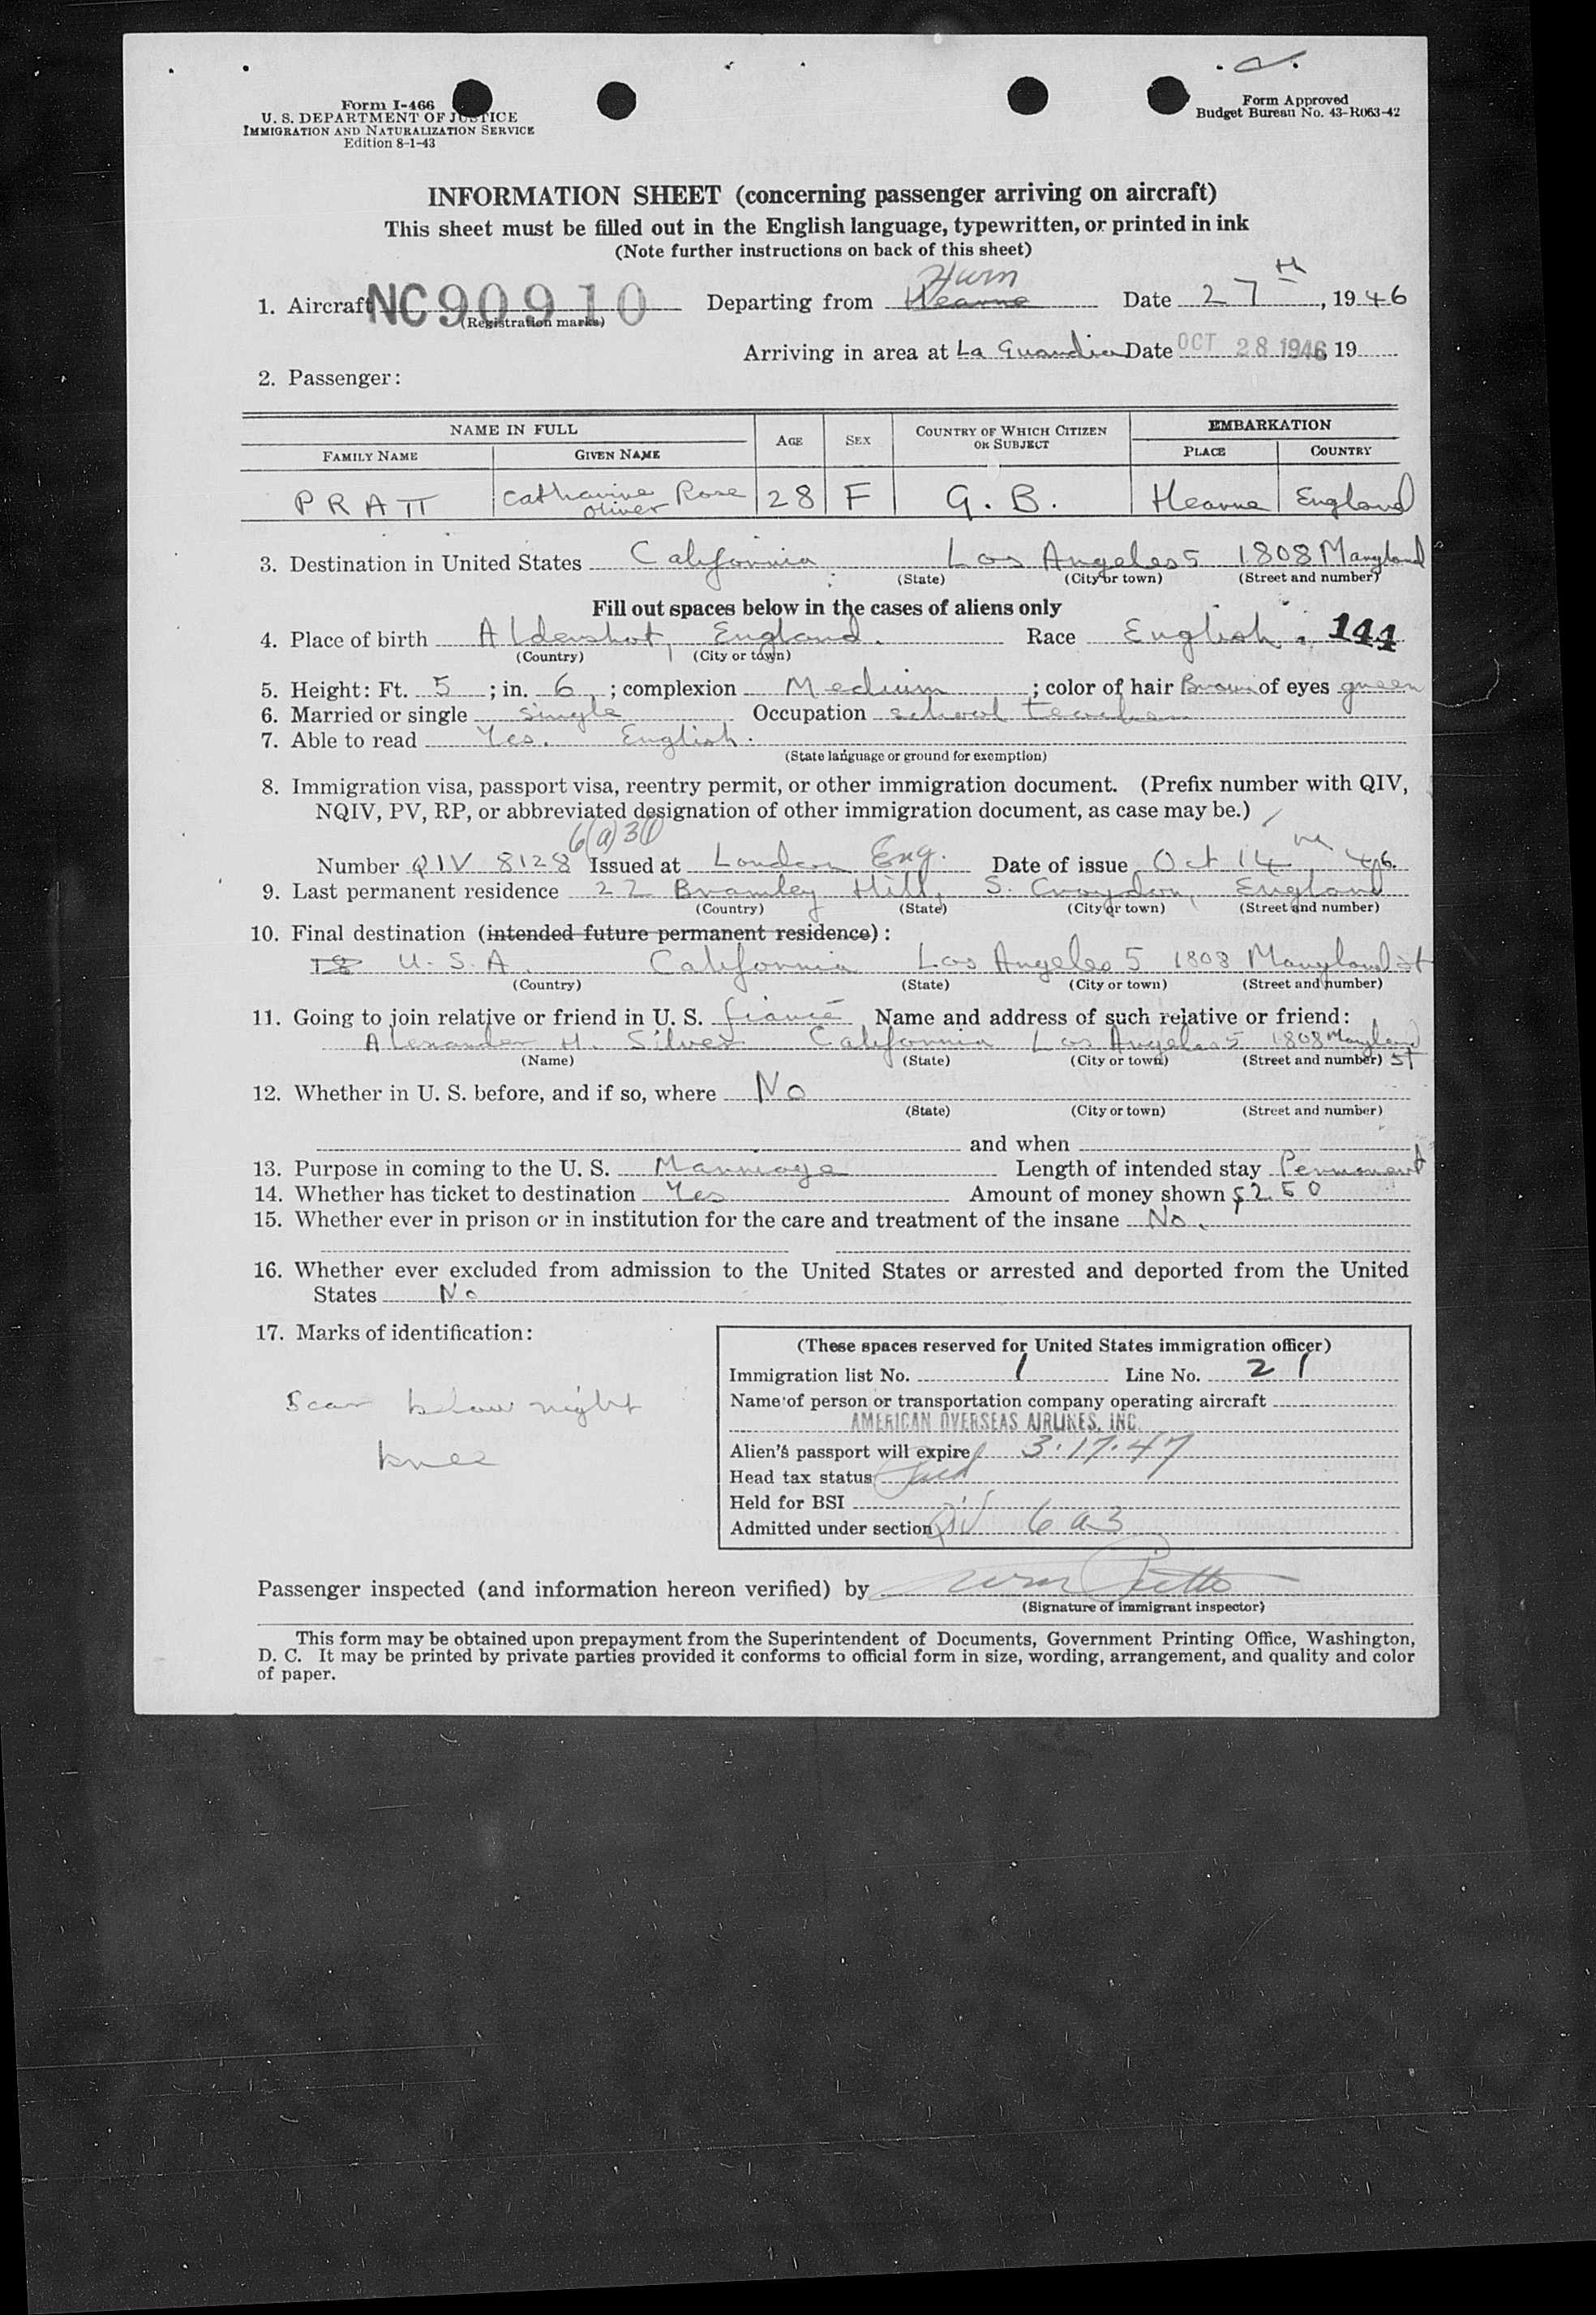 Form I-466
U. S. DEPARTMENT OF JUSTICE
IMMIGRATION AND NATURALIZATION SERVICE
Edition 8-1-43
Form Approved
Budget Bureau No. 43-R063-42
INFORMATION SHEET (concerning passenger arriving on aircraft)
This sheet must be filled out in the English language, typewritten, or printed in ink
(Note further instructions on back of this sheet)
Hurn
1. Aircraft NC90910 Departing from Hearne Date 27th, 1946
(Registration marks)
Arriving in area at La Guardia Date OCT 28 1946, 19
2. Passenger:
NAME IN FULL AGE SEX COUNTRY OF WHICH CITIZEN OR SUBJECT EMBARKATION
FAMILY NAME GIVEN NAME PLACE COUNTRY
PRATT Catharine Rose Oliver 28 F G. B. Hearne England
3. Destination in United States California Los Angeles 5 1808 Maryland
(State) (City or town) (Street and number)
Fill out spaces below in the cases of aliens only
4. Place of birth Aldershot, England. Race English. 144
(Country) (City or town)
5. Height: Ft. 5; in. 6; complexion Medium; color of hair Brown of eyes green
6. Married or single single Occupation school teacher
7. Able to read Yes. English.
(State language or ground for exemption)
8. Immigration visa, passport visa, reentry permit, or other immigration document. (Prefix number with QIV,
NQIV, PV, RP, or abbreviated designation of other immigration document, as case may be.)
6(a)3
Number QIV 8128 Issued at London Eng. Date of issue Oct 14 46.
9. Last permanent residence 22 Bramley Hill, S. Croydon, England
(Country) (State) (City or town) (Street and number)
10. Final destination (intended future permanent residence):
U.S.A. California Los Angeles 5 1808 Maryland st
(Country) (State) (City or town) (Street and number)
11. Going to join relative or friend in U. S. fiancé Name and address of such relative or friend:
Alexander H. Silver California Los Angeles 5 1808 Maryland
(Name) (State) (City or town) (Street and number) ST
12. Whether in U. S. before, and if so, where No
(State) (City or town) (Street and number)
and when
13. Purpose in coming to the U. S. Marriage Length of intended stay Permanent
14. Whether has ticket to destination Yes Amount of money shown $250
15. Whether ever in prison or in institution for the care and treatment of the insane No.
16. Whether ever excluded from admission to the United States or arrested and deported from the United
States No
17. Marks of identification:
Scar below right
knee
(These spaces reserved for United States immigration officer)
Immigration list No. 1 Line No. 21
Name of person or transportation company operating aircraft
AMERICAN OVERSEAS AIRLINES, INC.
Alien's passport will expire 3.17.47
Head tax status
Held for BSI
Admitted under section QIV 6a3
Passenger inspected (and information hereon verified) by
(Signature of immigrant inspector)
This form may be obtained upon prepayment from the Superintendent of Documents, Government Printing Office, Washington,
D. C. It may be printed by private parties provided it conforms to official form in size, wording, arrangement, and quality and color
of paper.